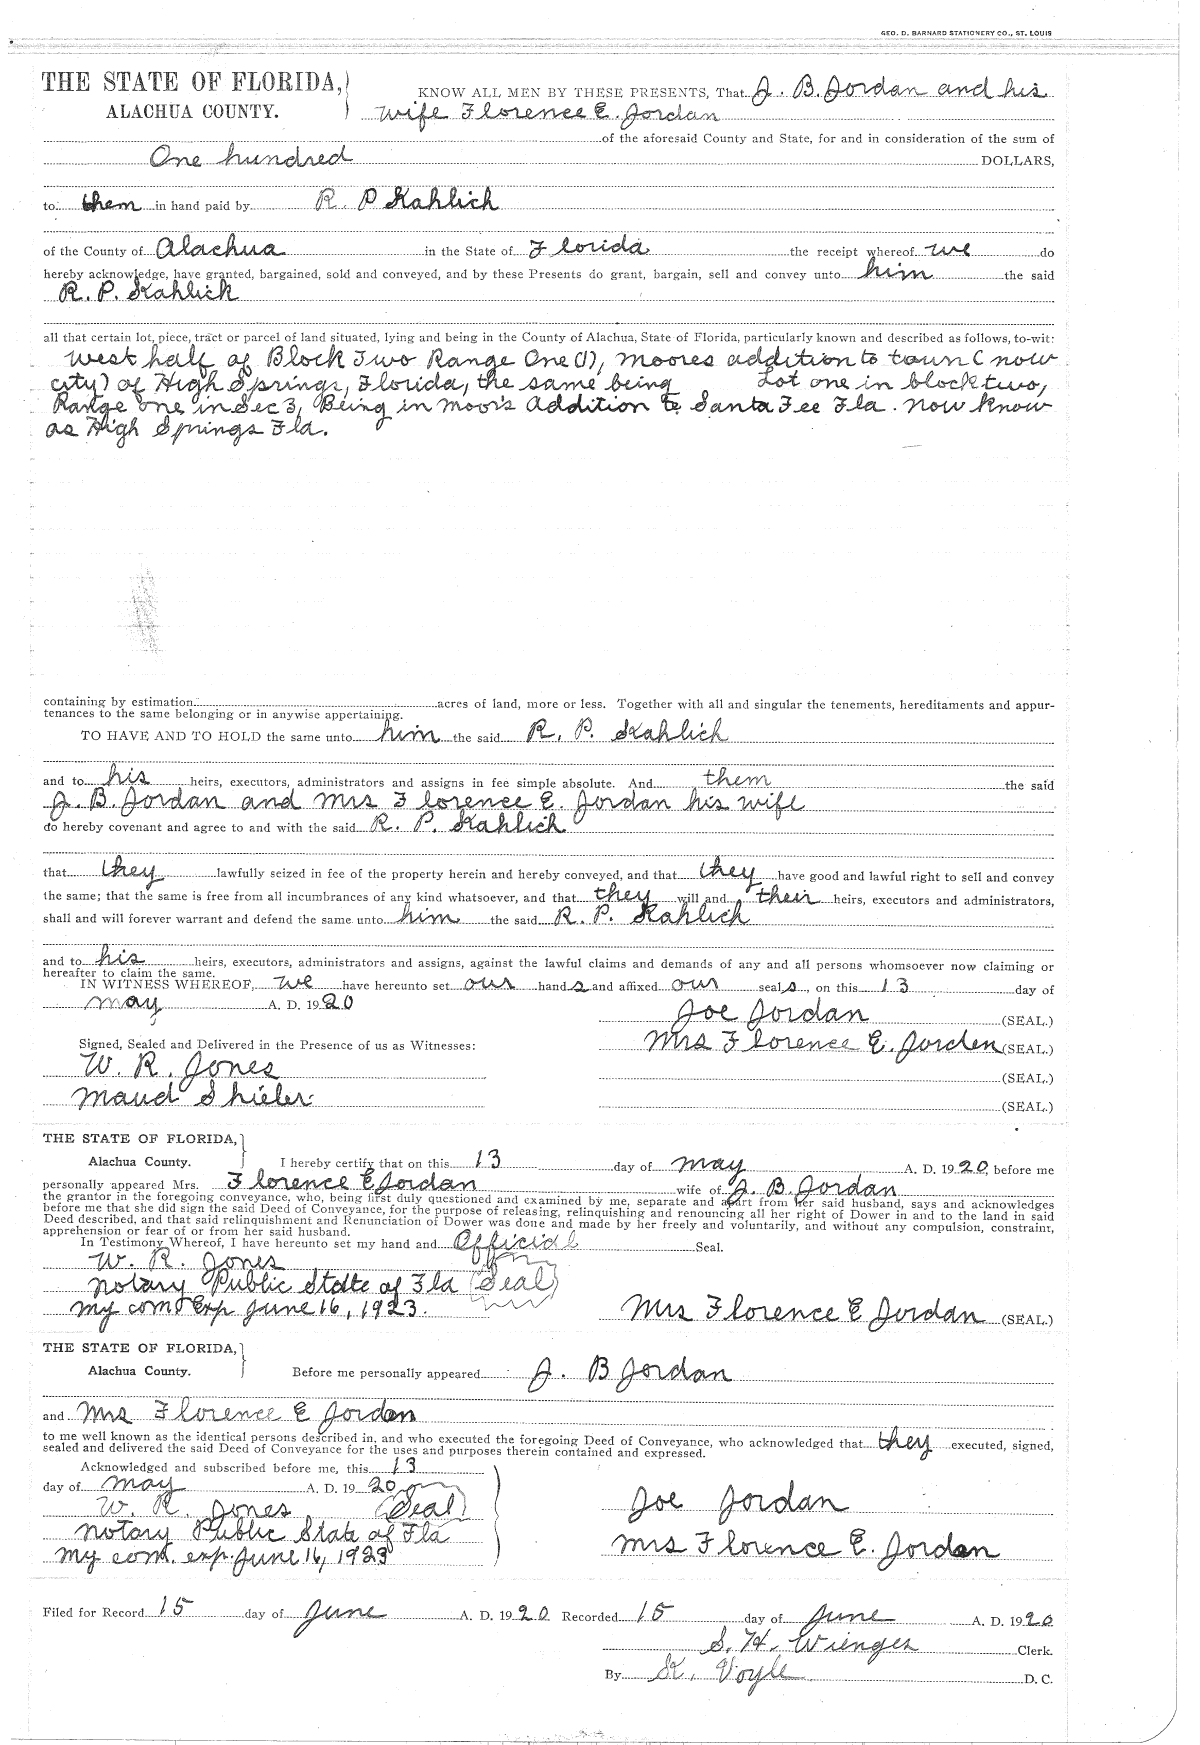 GEO. D. BARNARD STATIONERY CO., ST. LOUIS
THE STATE OF FLORIDA,
ALACHUA COUNTY.
KNOW ALL MEN BY THESE PRESENTS, That J. B. Jordan and his
wife Florence E. Jordan
of the aforesaid County and State, for and in consideration of the sum of
One hundred DOLLARS,
to them in hand paid by R. P Kahlich
of the County of Alachua in the State of Florida the receipt whereof we do
hereby acknowledge, have granted, bargained, sold and conveyed, and by these Presents do grant, bargain, sell and convey unto him the said
R. P. Kahlich
all that certain lot, piece, tract or parcel of land situated, lying and being in the County of Alachua, State of Florida, particularly known and described as follows, to-wit:
West half of Block Two Range One (1), Moores addition to town (now
city) of High Springs, Florida, the same being Lot one in block two,
Range one in Sec 3, Being in Moor's Addition to Santa Fee Fla. Now know
as High Springs Fla.
containing by estimation acres of land, more or less. Together with all and singular the tenements, hereditaments and appur-
tenances to the same belonging or in anywise appertaining.
TO HAVE AND TO HOLD the same unto him the said R. P. Kahlich
and to his heirs, executors, administrators and assigns in fee simple absolute. And them the said
J. B. Jordan and Mrs Florence E. Jordan his wife
do hereby covenant and agree to and with the said R. P. Kahlich
that they lawfully seized in fee of the property herein and hereby conveyed, and that they have good and lawful right to sell and convey
the same; that the same is free from all incumbrances of any kind whatsoever, and that they will and their heirs, executors and administrators,
shall and will forever warrant and defend the same unto him the said R. P. Kahlich
and to his heirs, executors, administrators and assigns, against the lawful claims and demands of any and all persons whomsoever now claiming or
hereafter to claim the same.
IN WITNESS WHEREOF, we have hereunto set our hands and affixed our seals, on this 13 day of
May A. D. 1920
Joe Jordan (SEAL.)
Signed, Sealed and Delivered in the Presence of us as Witnesses:
Mrs Florence E. Jorden (SEAL.)
W. R. Jones
(SEAL.)
Maud Shieler
(SEAL.)
THE STATE OF FLORIDA,
Alachua County.
I hereby certify that on this 13 day of May A. D. 1920 before me
personally appeared Mrs. Florence E Jordan wife of J. B. Jordan
the grantor in the foregoing conveyance, who, being first duly questioned and examined by me, separate and apart from her said husband, says and acknowledges
before me that she did sign the said Deed of Conveyance, for the purpose of releasing, relinquishing and renouncing all her right of Dower in and to the land in said
Deed described, and that said relinquishment and Renunciation of Dower was done and made by her freely and voluntarily, and without any compulsion, constraint,
apprehension or fear of or from her said husband.
In Testimony Whereof, I have hereunto set my hand and Official Seal.
W. R. Jones
Notary Public State of Fla (Seal)
My com Exp June 16, 1923.
Mrs Florence E Jordan (SEAL.)
THE STATE OF FLORIDA,
Alachua County.
Before me personally appeared J. B Jordan
and Mrs Florence E Jordan
to me well known as the identical persons described in, and who executed the foregoing Deed of Conveyance, who acknowledged that they executed, signed,
sealed and delivered the said Deed of Conveyance for the uses and purposes therein contained and expressed.
Acknowledged and subscribed before me, this 13
day of May A. D. 1920
W. R. Jones (Seal)
Notary Public State of Fla
My com. exp. June 16, 1923
Joe Jordan
Mrs Florence E. Jordan
Filed for Record 15 day of June A. D. 1920 Recorded 15 day of June A. D. 1920
S. H. Wienges Clerk.
By K. Voyle D. C.